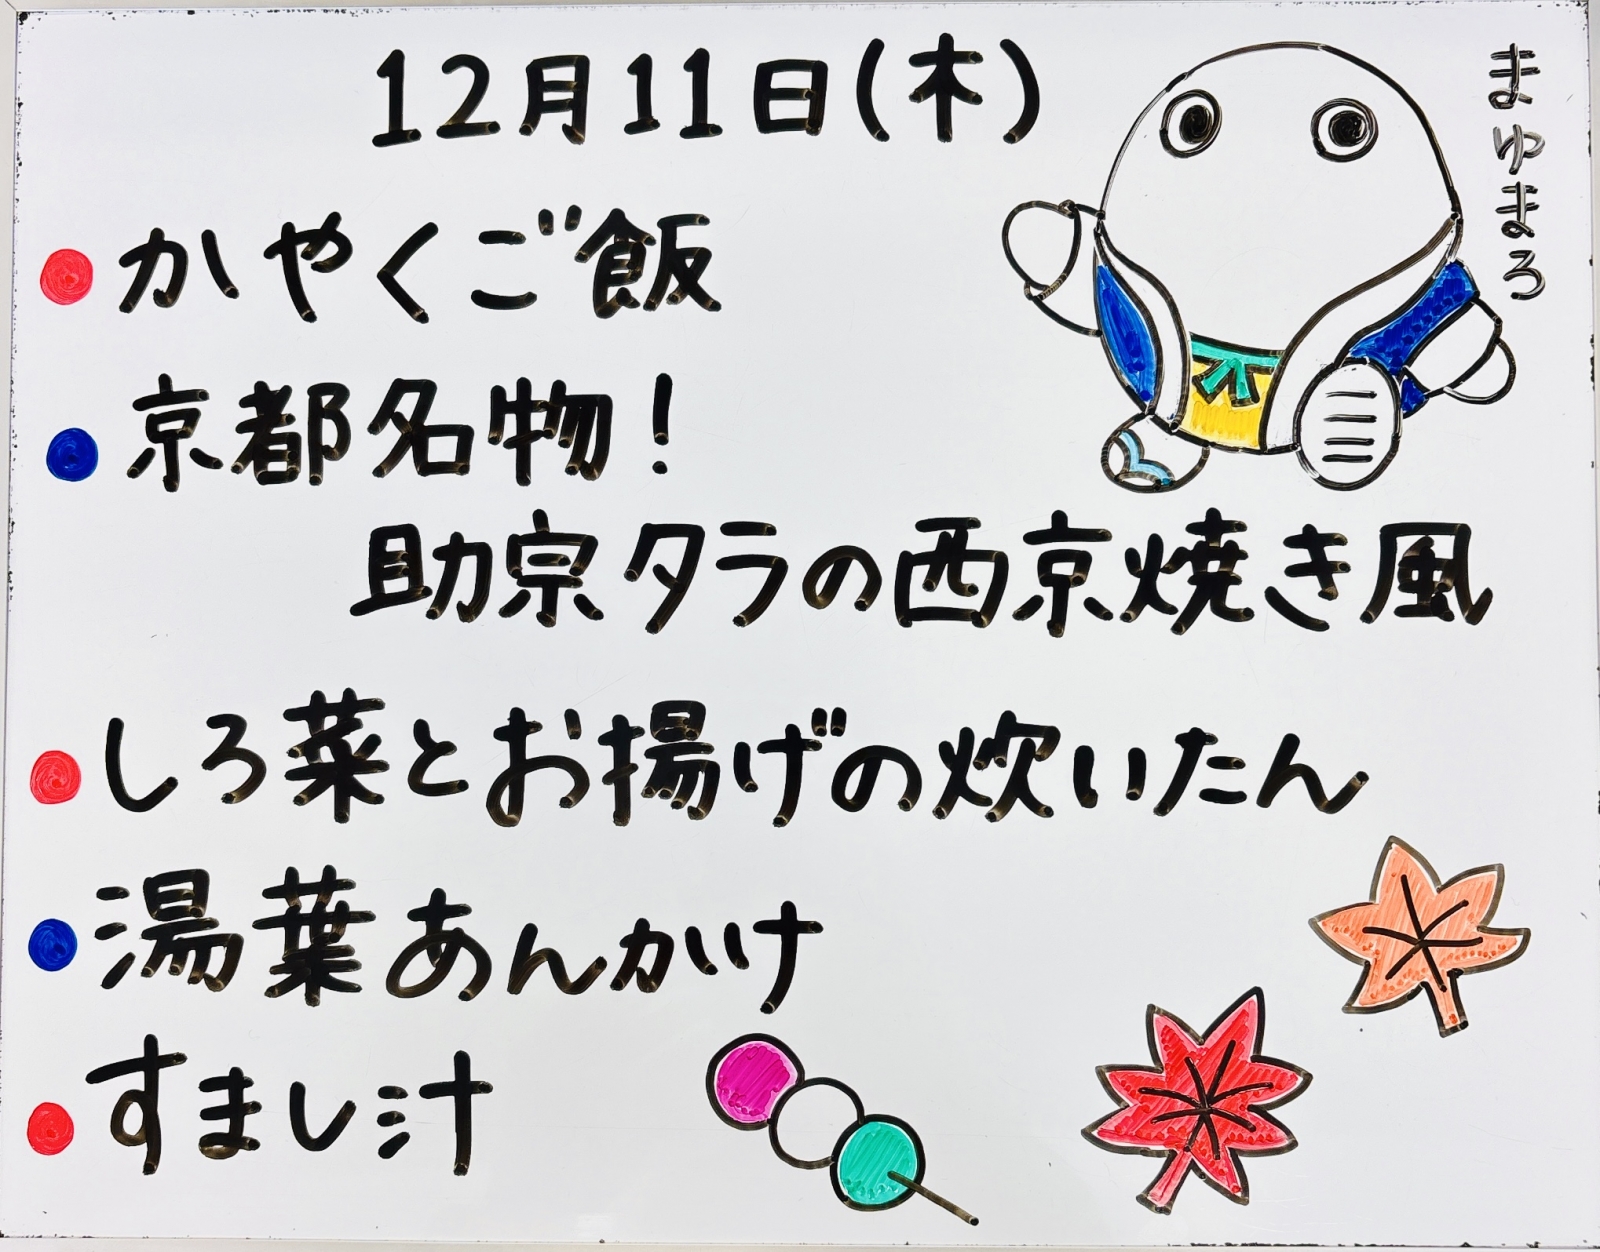 12月11日(木)
まゆまろ
かやくご飯
京都名物!
助宗タラの西京焼き風
しろ菜とお揚げの炊いたん
湯葉あんかけ
すまし汁